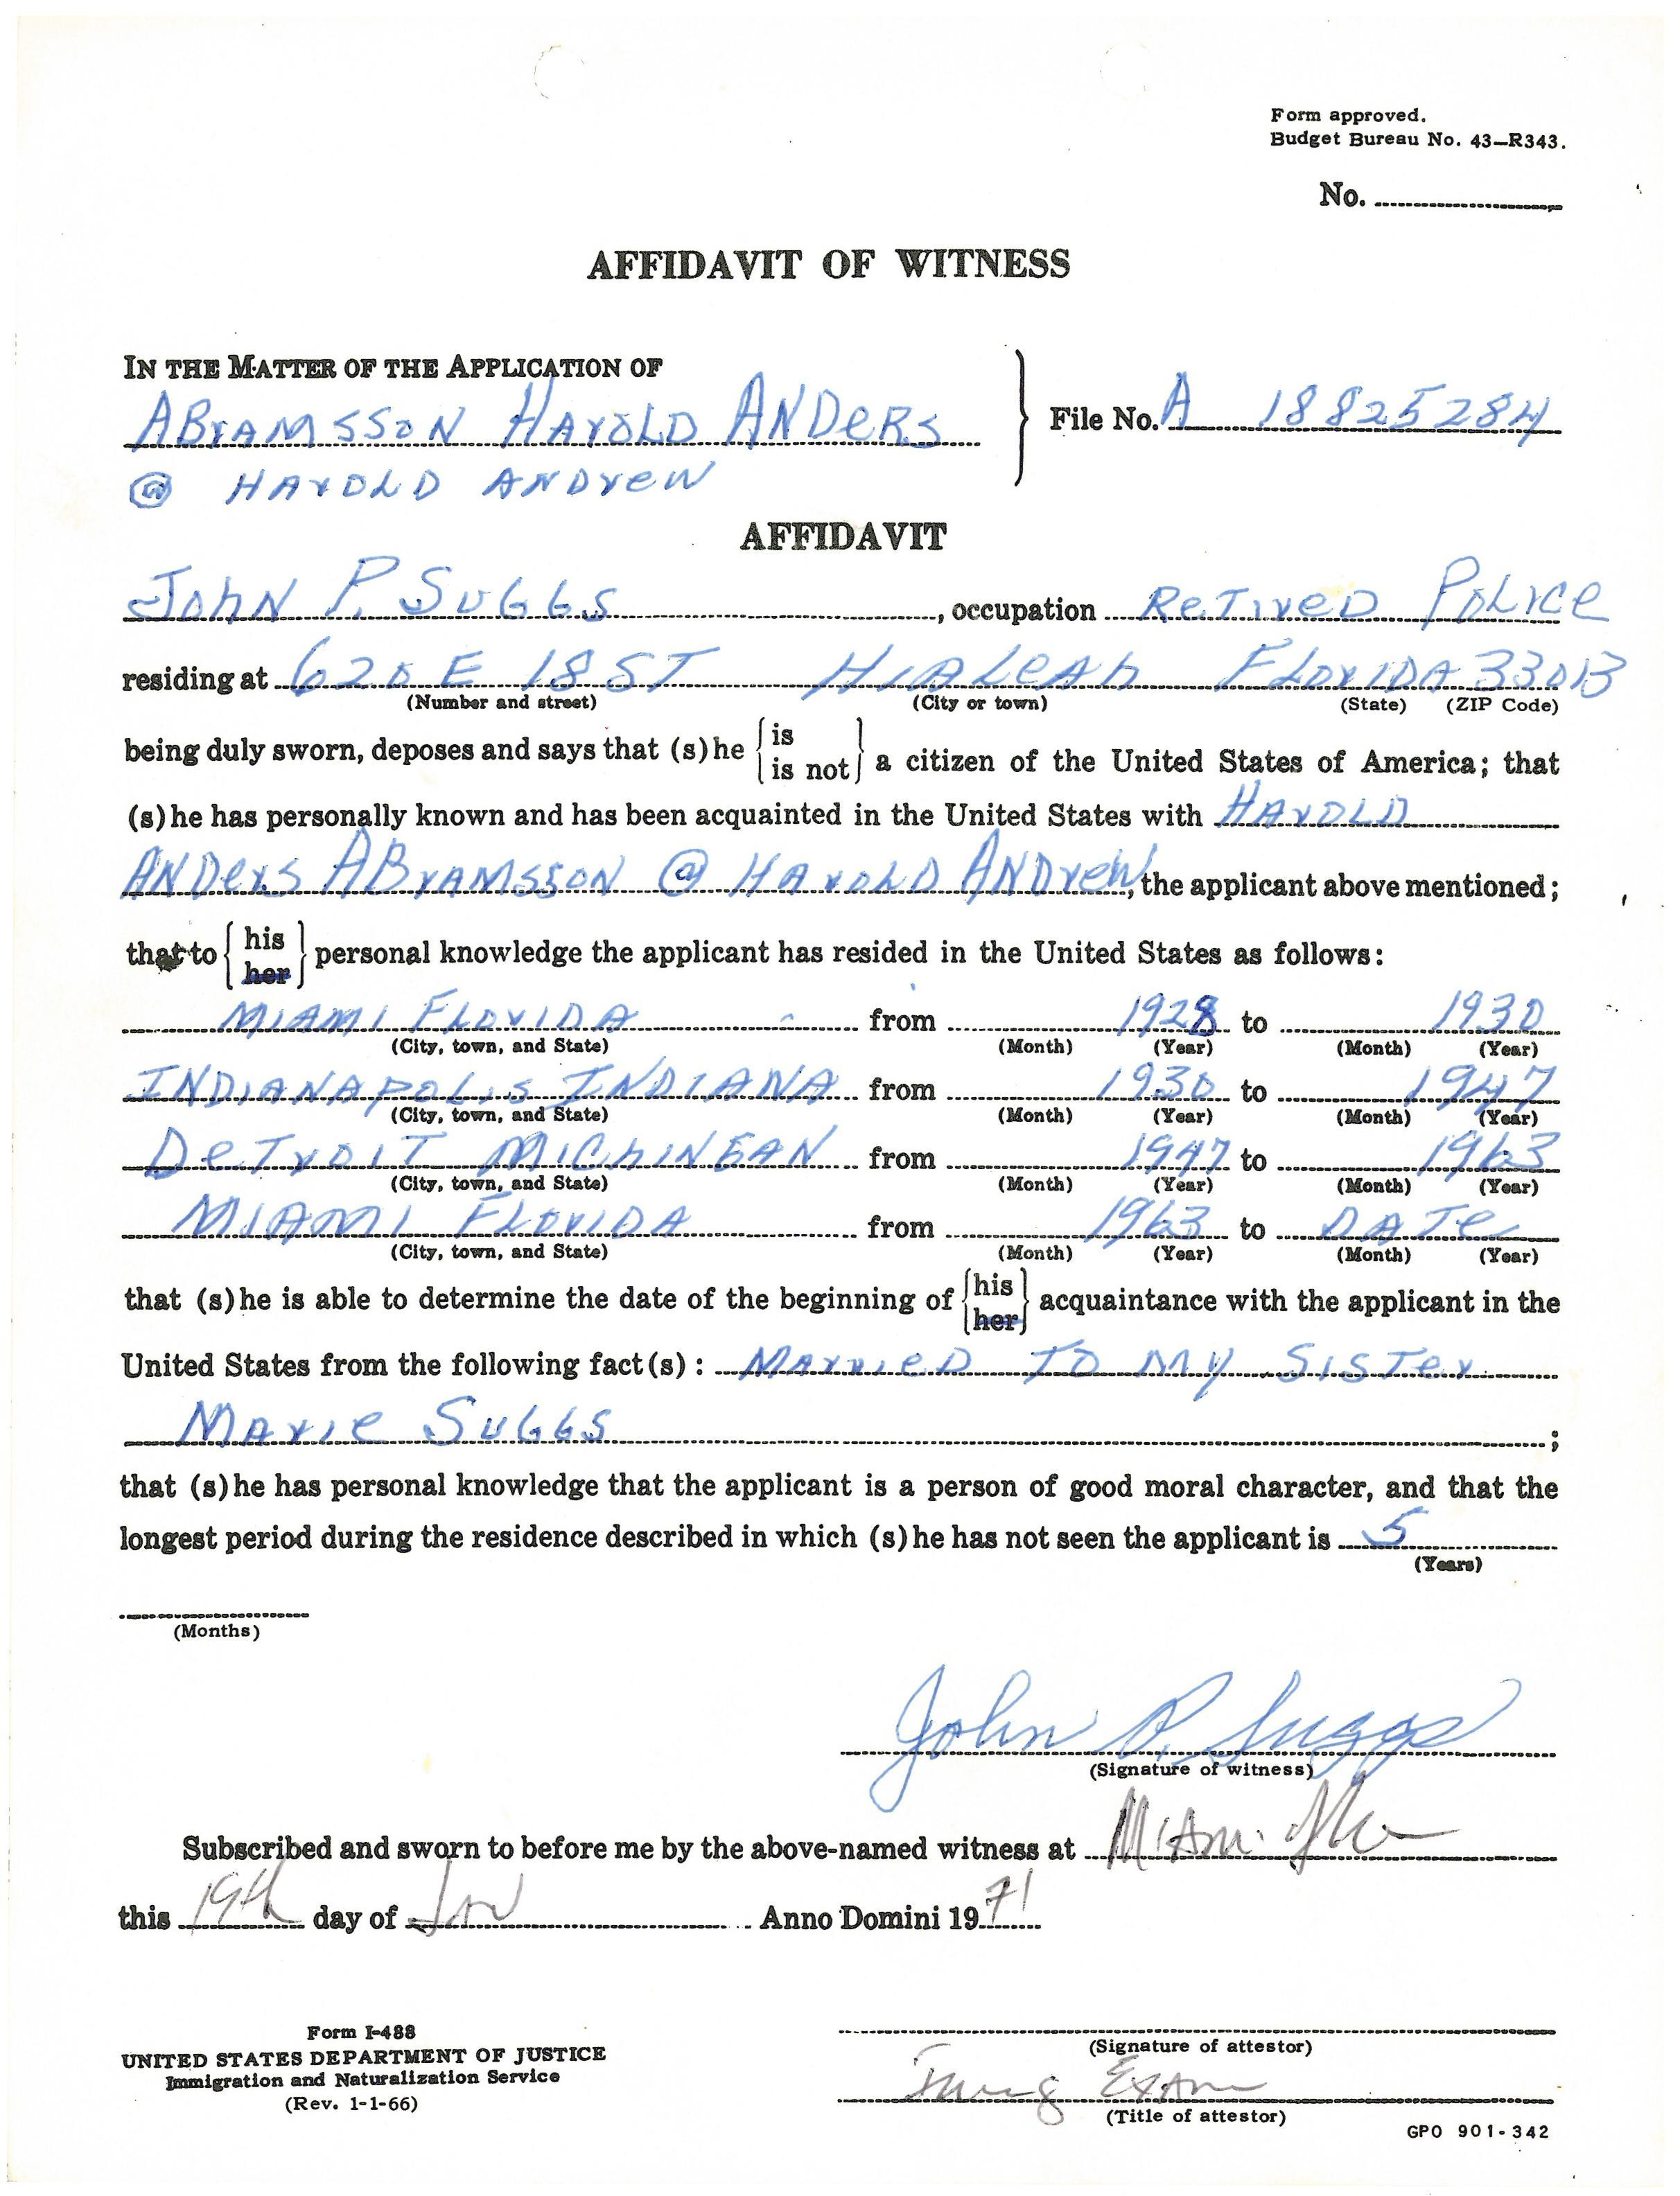 Form approved.
Budget Bureau No. 43—R343.
No.
AFFIDAVIT OF WITNESS
IN THE MATTER OF THE APPLICATION OF
ABrAMSSON HArOLD ANDeRS
File No. A 18825284
@ HArOLD ANDreW
AFFIDAVIT
JOhN P. SUGGS, occupation ReTIreD POLICe
residing at 620 E 18 ST HIALeAh FLOrIDA 33013
(Number and street) (City or town) (State) (ZIP Code)
being duly sworn, deposes and says that (s)he is
is not a citizen of the United States of America; that
(s)he has personally known and has been acquainted in the United States with HArOLD
ANDerS ABrAMSSON @ HArOLD ANDreW, the applicant above mentioned;
that to his
her personal knowledge the applicant has resided in the United States as follows:
MIAMI FLOrIDA from 1928 to 1930
(City, town, and State) (Month) (Year) (Month) (Year)
INDIANAPOLIS INDIANA from 1930 to 1947
(City, town, and State) (Month) (Year) (Month) (Year)
DeTrOIT MIChINGAN from 1947 to 1963
(City, town, and State) (Month) (Year) (Month) (Year)
MIAMI FLOrIDA from 1963 to DATe
(City, town, and State) (Month) (Year) (Month) (Year)
that (s)he is able to determine the date of the beginning of his
her acquaintance with the applicant in the
United States from the following fact(s): MArrIeD TO MY SISTer
MArIe SUGGS;
that (s)he has personal knowledge that the applicant is a person of good moral character, and that the
longest period during the residence described in which (s)he has not seen the applicant is 5
(Years)
(Months)
John P. Suggs
(Signature of witness)
Subscribed and sworn to before me by the above-named witness at Miami Fla
this 19th day of Jan Anno Domini 1971
Form I-488
UNITED STATES DEPARTMENT OF JUSTICE
Immigration and Naturalization Service
(Rev. 1-1-66)
(Signature of attestor)
Exam
(Title of attestor)
GPO 901-342